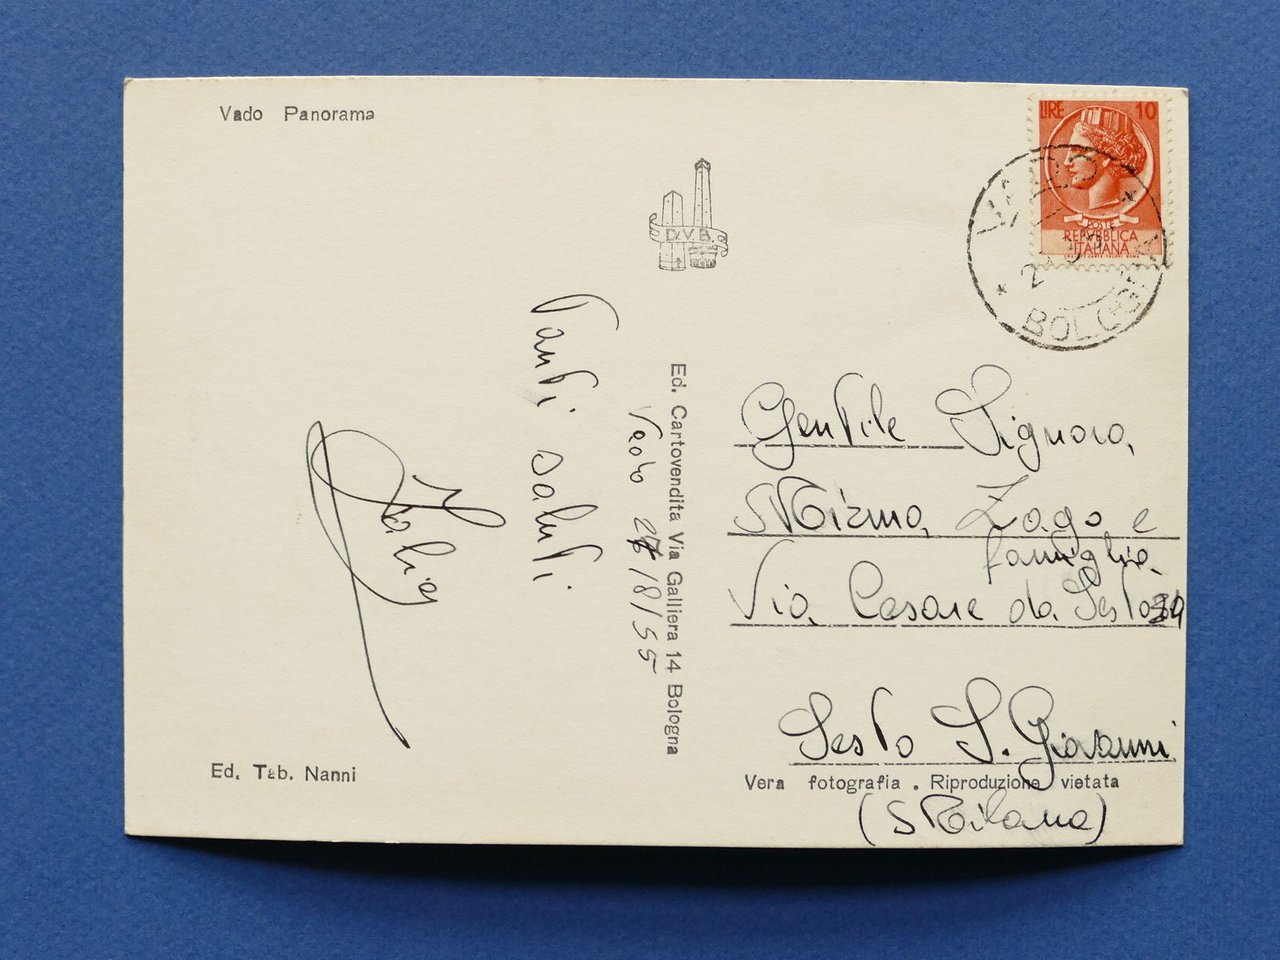 Vado Panorama
LIRE 10
POSTE
REPVBBLICA
ITALIANA
VADO
BOLOGNA
D.V.B.
Ed. Cartovendita Via Galliera 14 Bologna
Vado 27/8/55
Tanti saluti
Gentile Signora
Mirma Zago e
famiglia
Via Cesare da Sesto 24
Sesto S. Giovanni
(Milano)
Ed. Tab. Nanni
Vera fotografia . Riproduzione vietata